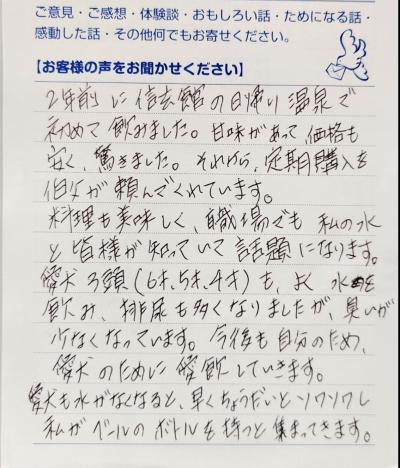 ご意見・ご感想・体験談・おもしろい話・ためになる話・
感動した話・その他何でもお寄せください。
【お客様の声をお聞かせください】
2年前に信玄館の日帰り温泉で
初めて飲みました。甘味があって、価格も
安く、驚きました。それから、定期購入を
伯父が頼んでくれています。
料理も美味しく、職場でも私の水
と皆様が知っていて話題になります。
愛犬3頭(6才、5才、4才)も、よく水を
飲み、排尿も多くなりましたが、臭いが
少なくなっています。今後も自分のため、
愛犬のために愛飲していきます。
愛犬も水がなくなると、早くちょうだいとソワソワし
私がベールのボトルを持つと集まってきます。